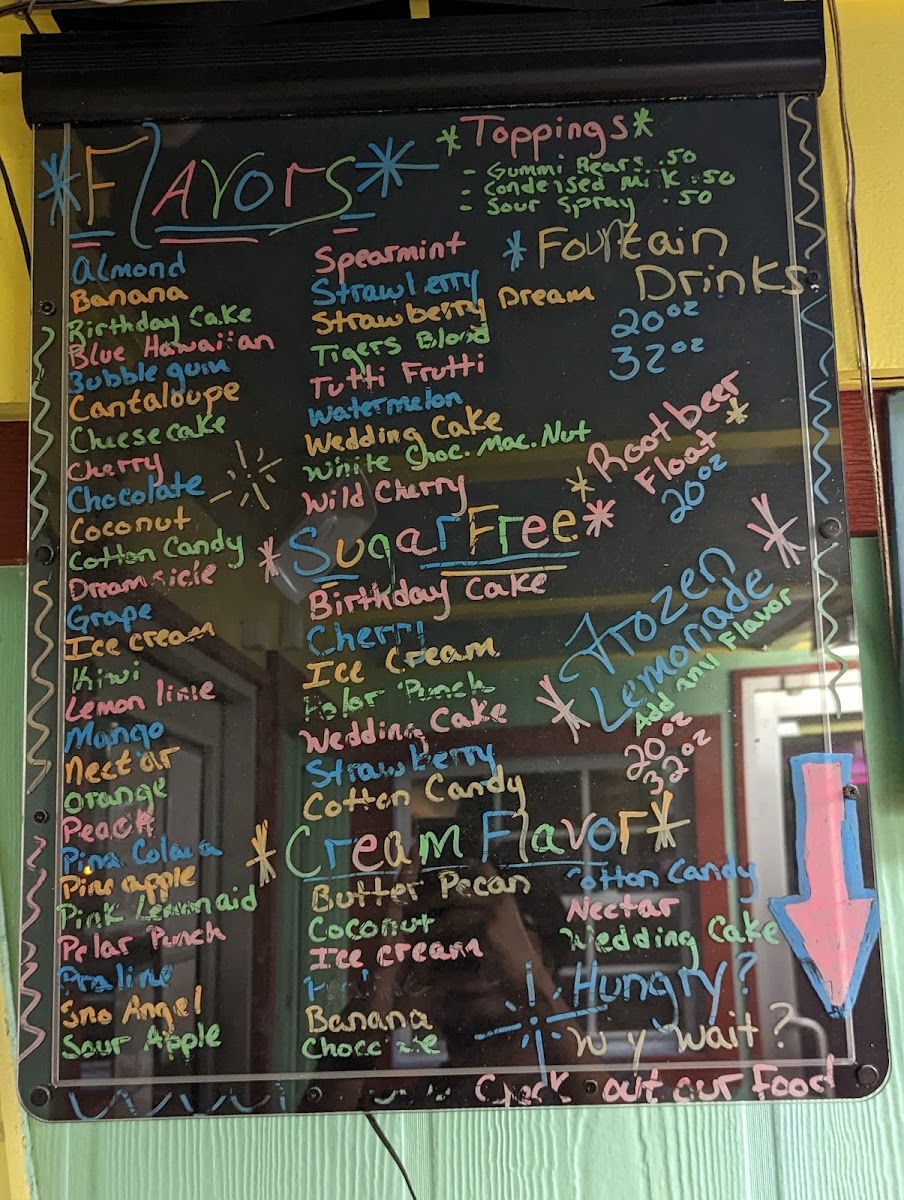 *Flavors*
Almond
Banana
Birthday Cake
Blue Hawaiian
Bubble gum
Cantaloupe
Cheesecake
Cherry
Chocolate
Coconut
Cotton Candy
Dreamsicle
Grape
Ice cream
Kiwi
Lemon lime
Mango
Nectar
Orange
Peach
Pina Colada
Pineapple
Pink Lemonaid
Polar Punch
Praline
Sno Angel
Sour Apple
Spearmint
Strawberry
Strawberry Dream
Tigers Blood
Tutti Frutti
Watermelon
Wedding Cake
White Choc. Mac. Nut
Wild Cherry
*Sugar Free*
Birthday Cake
Cherry
Ice Cream
Polar Punch
Wedding Cake
Strawberry
Cotton Candy
*Cream Flavor*
Butter Pecan
Coconut
Ice cream
Banana
Chocolate
Cotton Candy
Nectar
Wedding Cake
*Toppings*
- Gummi Bears .50
- Condensed Milk .50
- Sour Spray .50
*Fountain
Drinks
20oz
32oz
*Root beer
Float*
20oz
*Frozen
Lemonade*
Add any Flavor
20oz
32oz
Hungry?
W y wait?
Check out our food